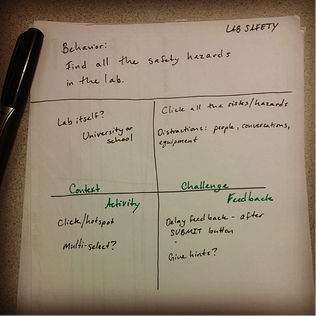 LAB SAFETY
Behavior:
Find all the safety hazards
in the lab.
Lab itself?
University or
school
Click all the risks/hazards
Distractions: people, conversations,
equipment
Context
Challenge
Activity
Feedback
Click/hotspot
Multi-select?
Delay feedback - after
SUBMIT button
-
Give hints?